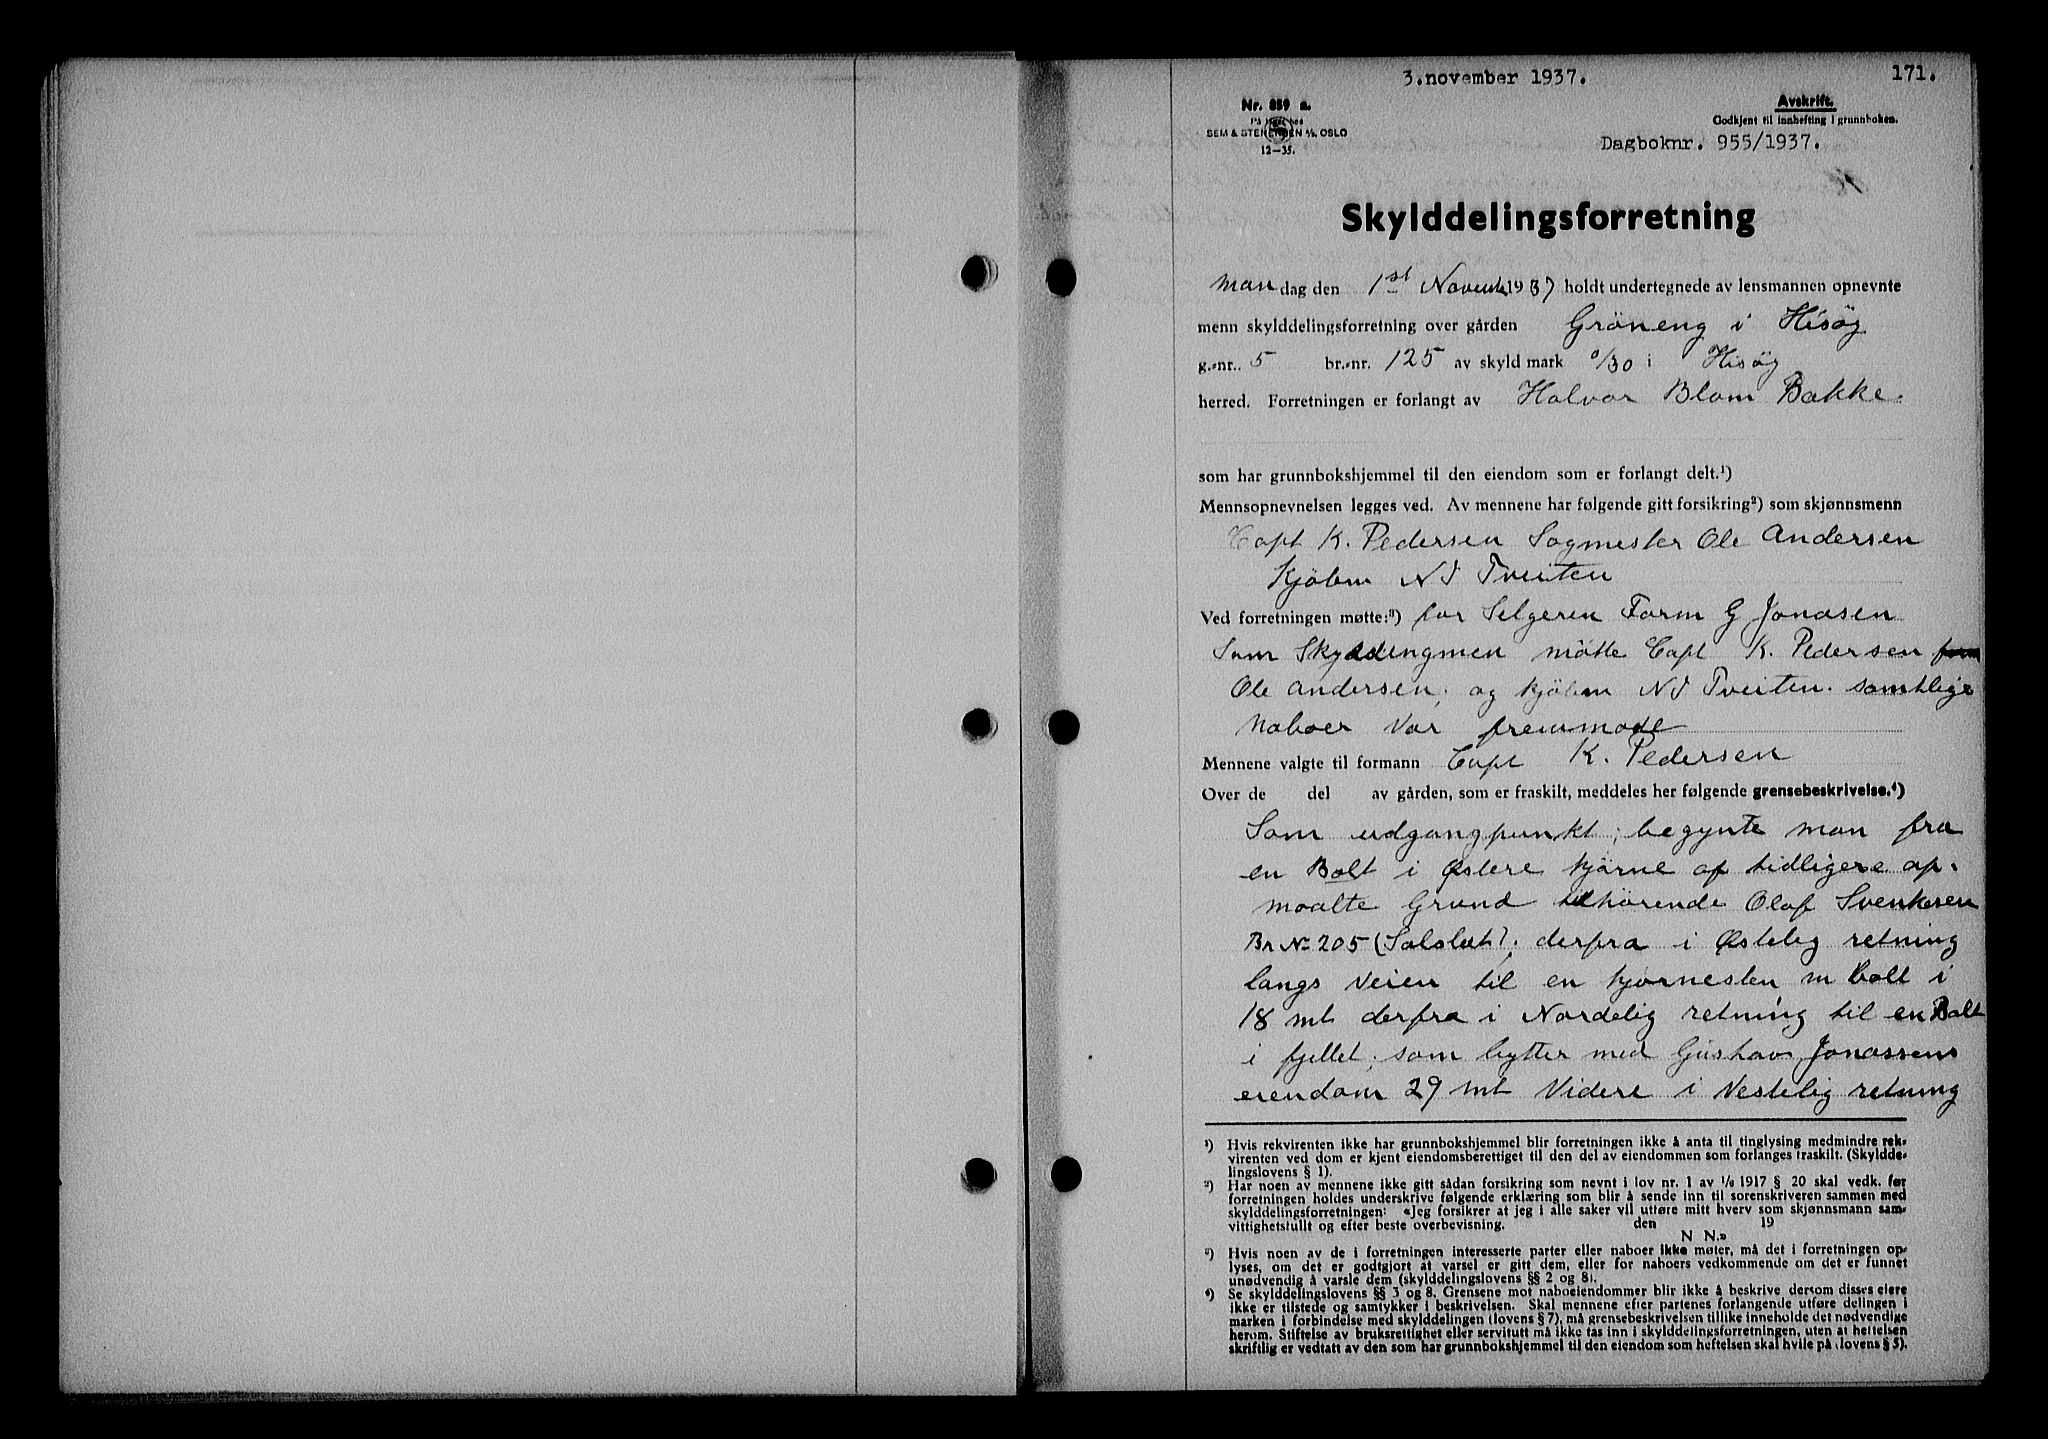 3.november 1937.
171.
Nr. 859 a.
Avskrift.
SEM & STENERSEN A/S OSLO
Godkjent til innhefting i grunnboken.
12-35.
Dagboknr. 955/1937.
Skylddelingsforretning
Man dag den 1st Novemb 1937 holdt undertegnede av lensmannen opnevnte
menn skylddelingsforretning over gården Gröneng i Hisöy
g.-nr. 5 br.-nr. 125 av skyld mark 0/30 i Hisöy
herred. Forretningen er forlangt av Halvor Blom Bakke.
som har grunnbokshjemmel til den eiendom som er forlangt delt.¹)
Mennsopnevnelsen legges ved. Av mennene har følgende gitt forsikring²) som skjønnsmenn
Capt K. Pedersen Sagmester Ole Andersen
Kjöbm N J Tveiten
Ved forretningen møtte:³) for Selgeren Form G Jonasen
Som mötte Capt K. Pedersen
Ole Andersen, og kjöbm N J Tveiten. samtlige
Naboer var fremmøde
Mennene valgte til formann Capt K. Pedersen
Over de del av gården, som er fraskilt, meddeles her følgende grensebeskrivelse.⁴)
Som udgangpunkt, begynte man fra
en Bolt i Østere hjörne af tidligere op-
maalte Grund tilhörende Olaf
Br No 205 (Solslet), derfra i Østelig retning
langs Veien til en hjörnesten m bolt i
18 mt derfra i Nordelig retning til en Bolt
i fjellet, som bytter med Gustav Jonassens
eiendom 29 mt Videre i Vestelig retning
¹) Hvis rekvirenten ikke har grunnbokshjemmel blir forretningen ikke å anta til tinglysing medmindre rek-
virenten ved dom er kjent eiendomsberettiget til den del av eiendommen som forlanges fraskilt. (Skyldde-
lingslovens § 1).
²) Har noen av mennene ikke gitt sådan forsikring som nevnt i lov nr. 1 av 1/6 1917 § 20 skal vedk. før
forretningen holdes underskrive følgende erklæring som blir å sende inn til sorenskriveren sammen med
skylddelingsforretningen: «Jeg forsikrer at jeg i alle saker vil utføre mitt hverv som skjønnsmann sam-
vittighetsfullt og efter beste overbevisning. den 19
N N.»
³) Hvis noen av de i forretningen interesserte parter eller naboer ikke møter, må det i forretningen op-
lyses, om det er godtgjort at varsel er gitt dem, eller for naboers vedkommende om det er funnet
unødvendig å varsle dem (skylddelingslovens §§ 2 og 8).
⁴) Se skylddelingslovens §§ 3 og 8. Grensene mot naboeiendommer blir ikke å beskrive dersom disses eiere
ikke er tilstede og samtykker i beskrivelsen. Skal mennene efter partenes forlangende utføre delingen i
marken i forbindelse med skylddelingen (lovens § 7), må grensebeskrivelsen tillike inneholde det nødvendige
herom. Stiftelse av bruksrettighet eller servitutt må ikke tas inn i skylddelingsforretningen, uten at heftelsen
skriftlig er vedtatt av den som har grunnbokshjemmel til den eiendom som heftelsen skal hvile på (lovens § 5).